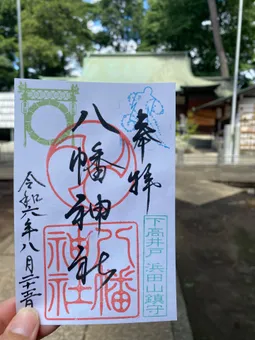 奉拝
八幡神社
八幡
神社
下高井戸 浜田山鎮守
令和六年八月二十三日